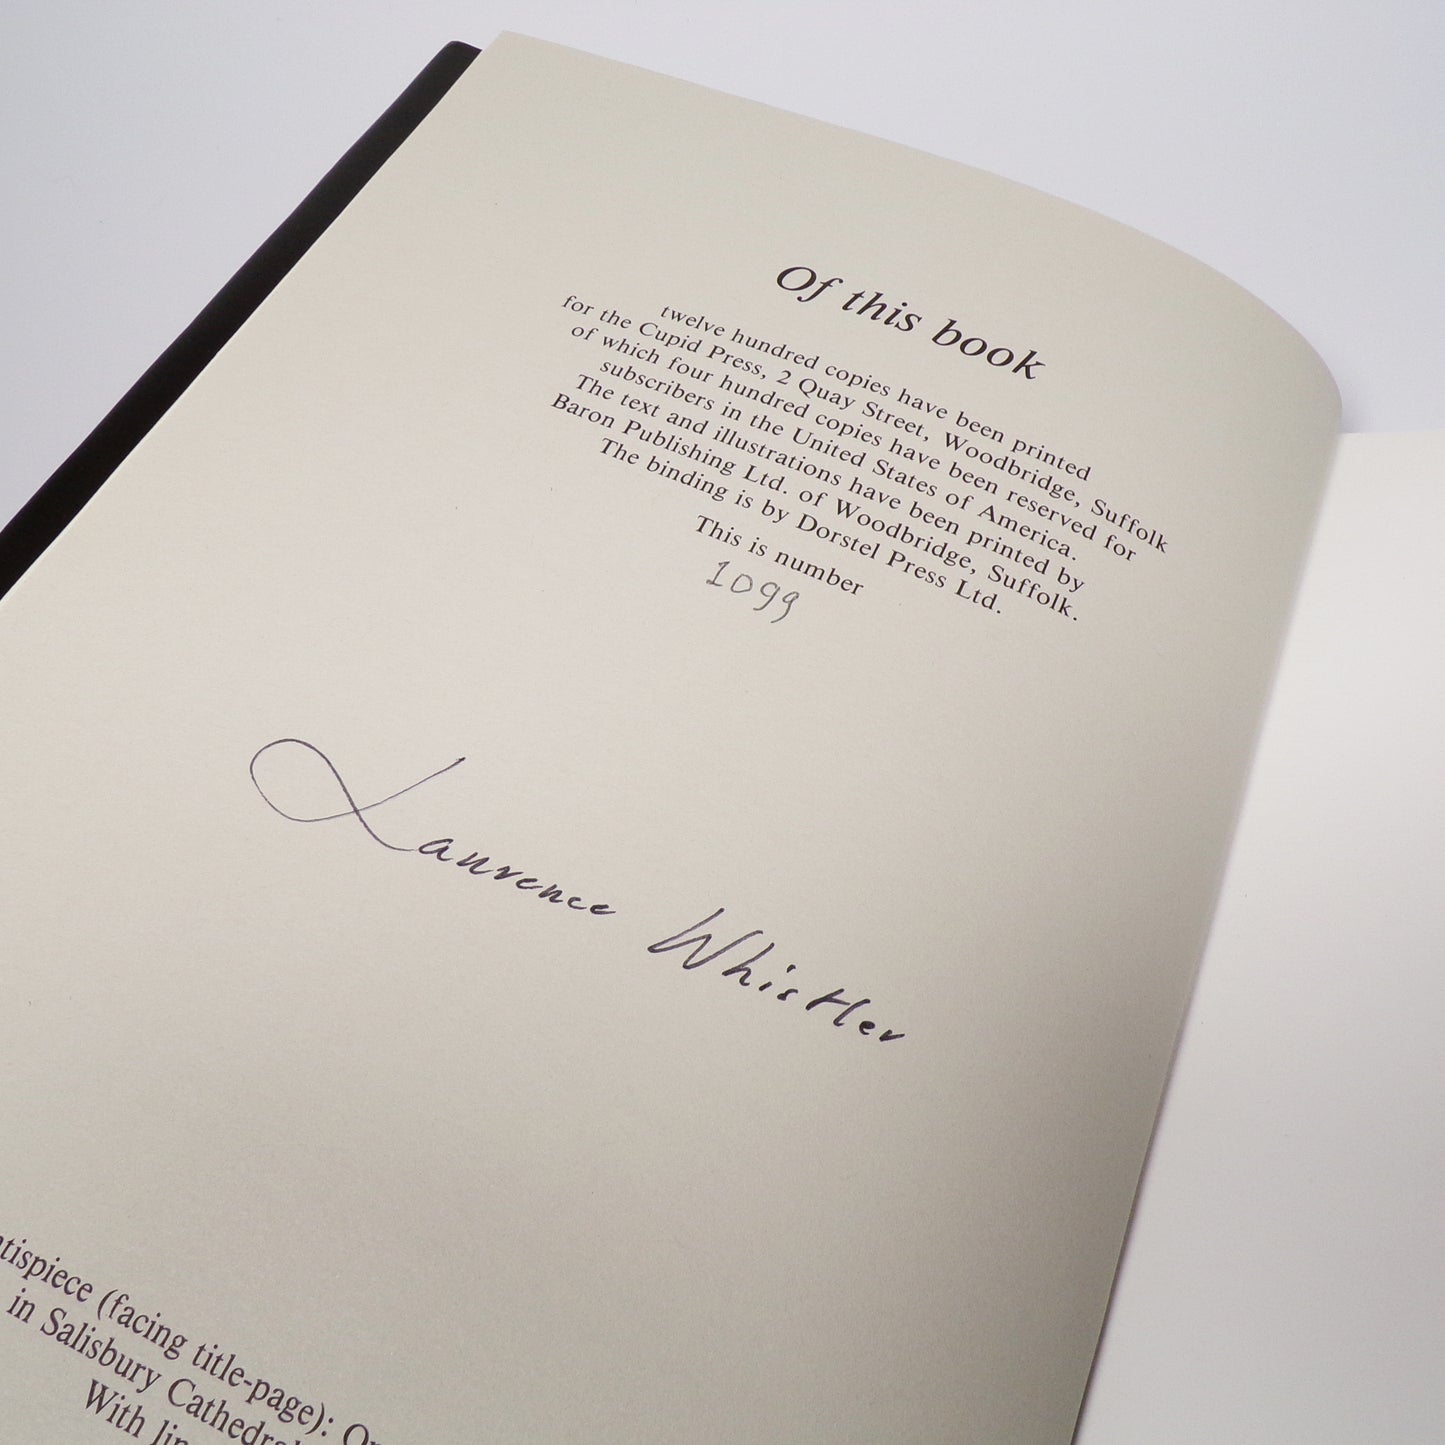 Of this book
twelve hundred copies have been printed
for the Cupid Press, 2 Quay Street, Woodbridge, Suffolk
of which four hundred copies have been reserved for
subscribers in the United States of America.
The text and illustrations have been printed by
Baron Publishing Ltd. of Woodbridge, Suffolk.
The binding is by Dorstel Press Ltd.
This is number
1099
Laurence Whistler
(facing title-page):
in Salisbury
With